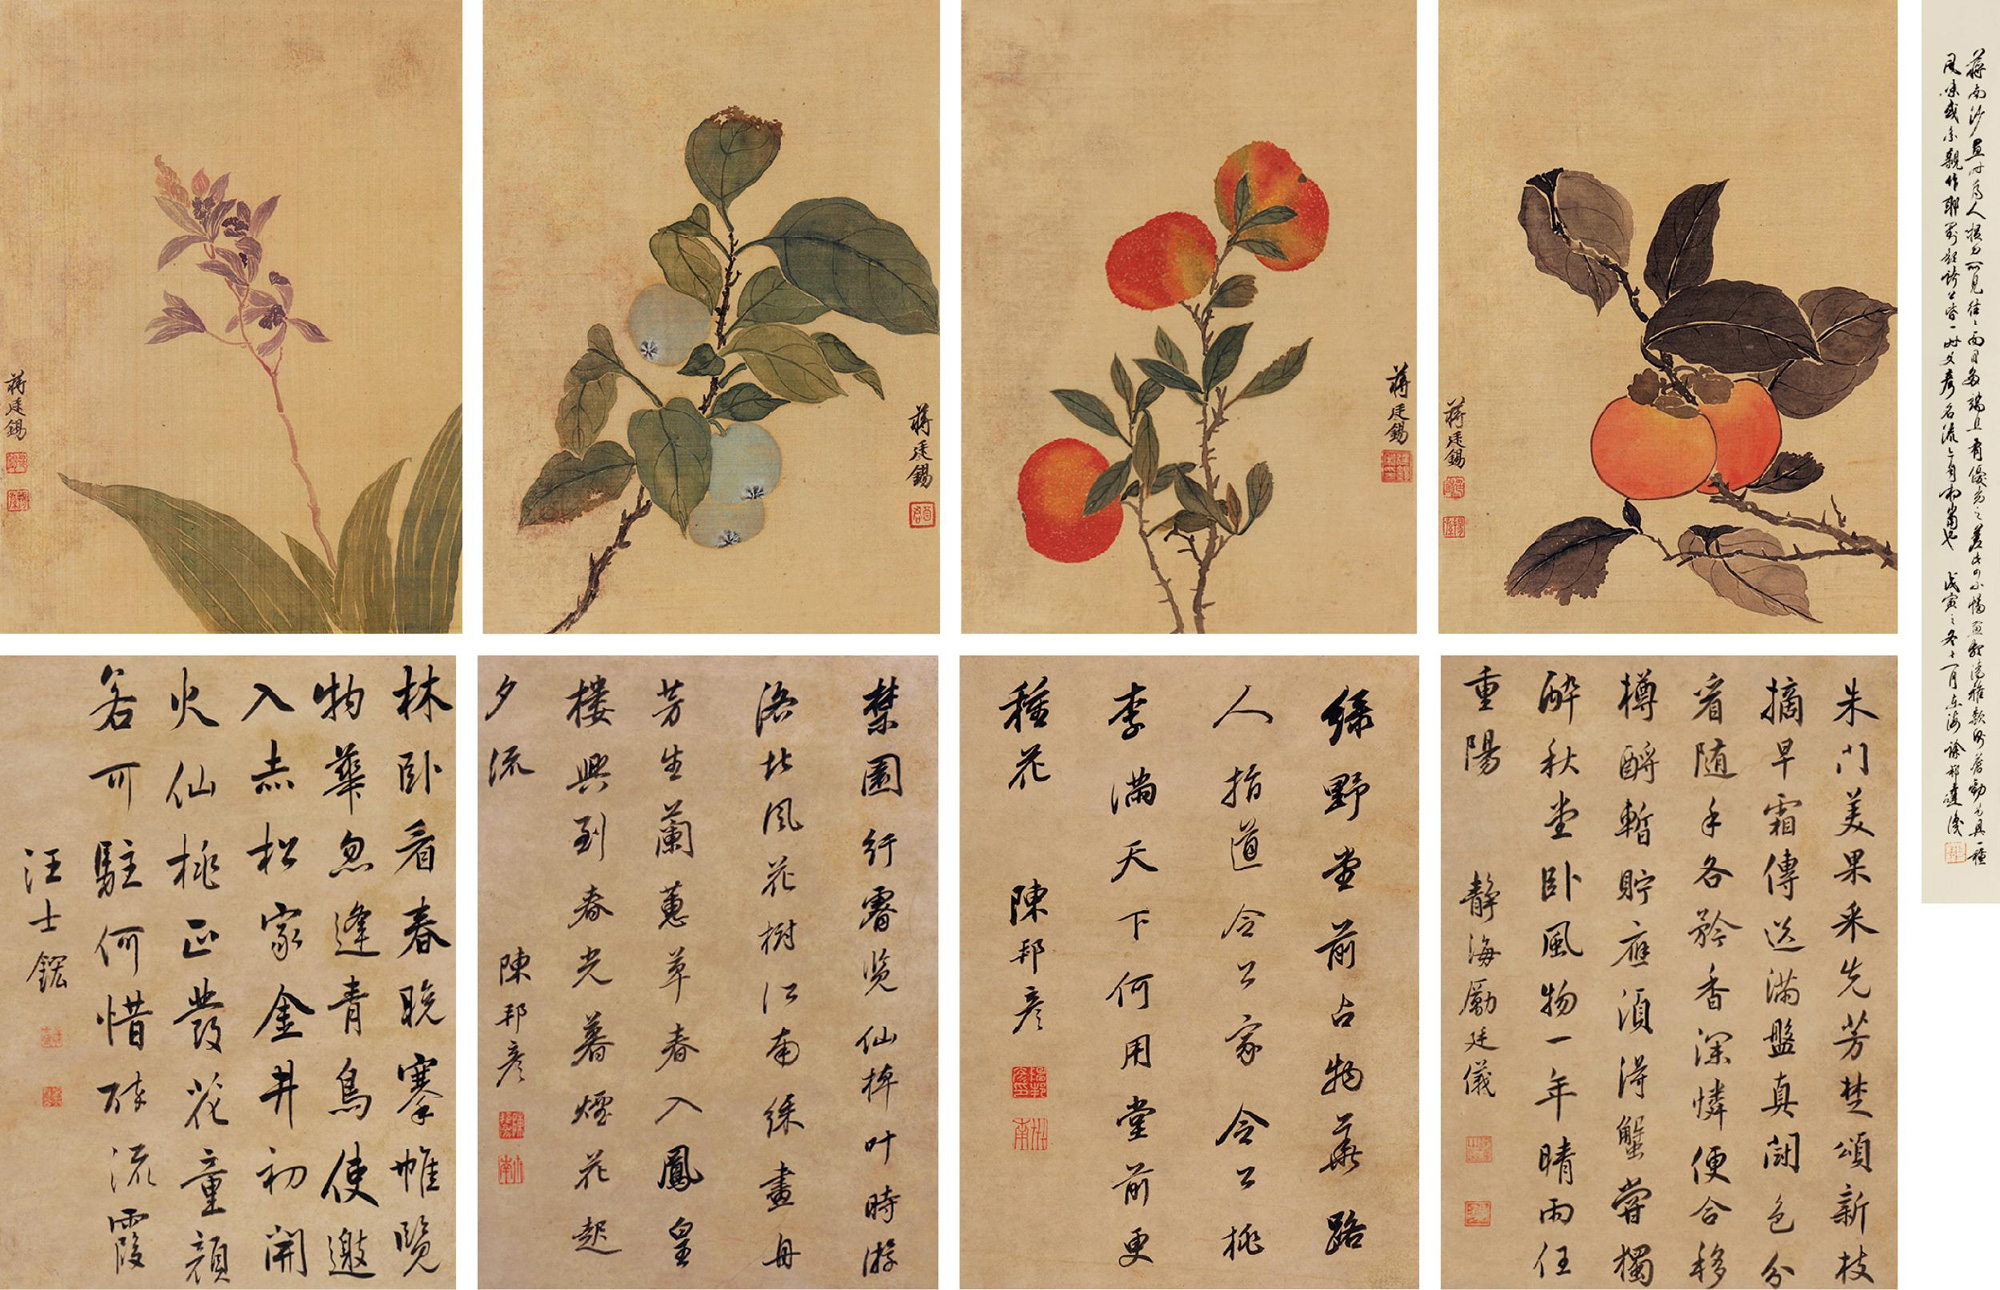 蔣南沙畫
戊寅之冬十一月东海徐邦達识
蔣廷錫
蔣廷錫
蔣廷錫
蔣廷錫
朱門美果采先芳楚頌新枝
摘早霜傳送滿盤真鬪色分
看随手各矜香深憐便合移
樽酹暫貯應須得蟹嘗獨
酔秋堂卧風物一年晴雨任
重陽 靜海勵廷儀
綠野堂前占物華路
人指道令公家令公桃
李滿天下何用堂前更
種花 陳邦彦
禁園行睿览仙棹叶時游
洛北風花樹江南綵畫舟
芳生蘭蕙草春入鳳皇
樓興到春光暮煙花起
夕流 陳邦彦
林卧看春晚搴帷覽
物華忽逢青鳥使邀
入赤松家金井初開
火仙桃正發花童顔
若可駐何惜醉流霞
汪士鋐